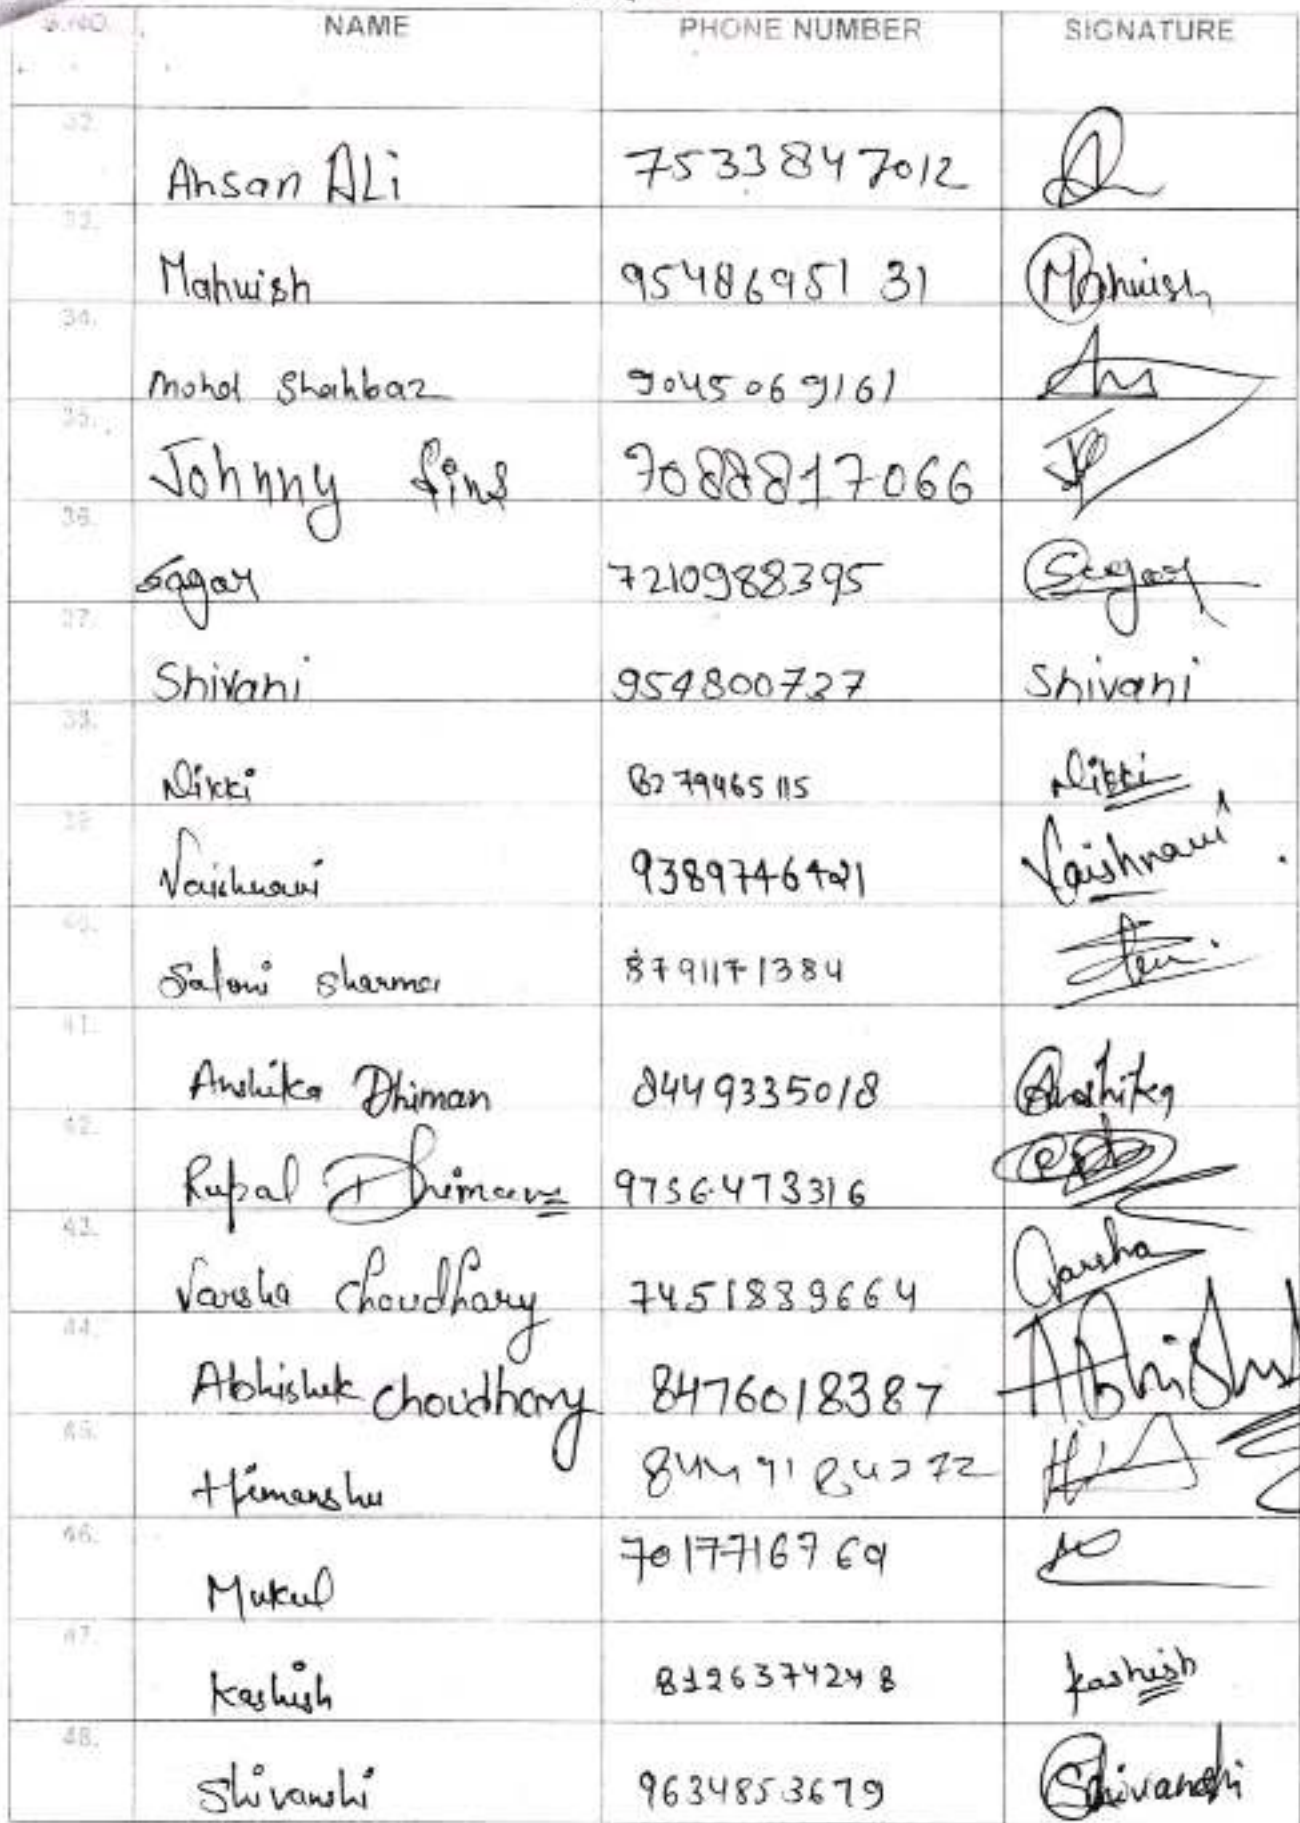 S.NO. NAME PHONE NUMBER SIGNATURE
32. Ahsan ALi 7533847012
33. Mahwish 9548695131 Mahwish
34. Mohd Shahbaz 9045069161
35. Johnny Sins 7088817066
36. Sagar 7210988395 Sagar
37. Shivani 954800727 Shivani
38. Nikki 8279465115 Nikki
39. Vaishnavi Vaishnavi
40. Saloni Sharma 8791171384
41. Anshika Dhiman 8449335018 Anshika
42. Rupal Dhiman 9756473316
43. Varsha Choudhary 7451839664 Varsha
44. Abhishek Choudhary 8476018387 Abhishek
45. Himanshu
46. Mukul 7017716769
47. Kashish 8126374248 Kashish
48. Shivanshi 9634853679 Shivanshi